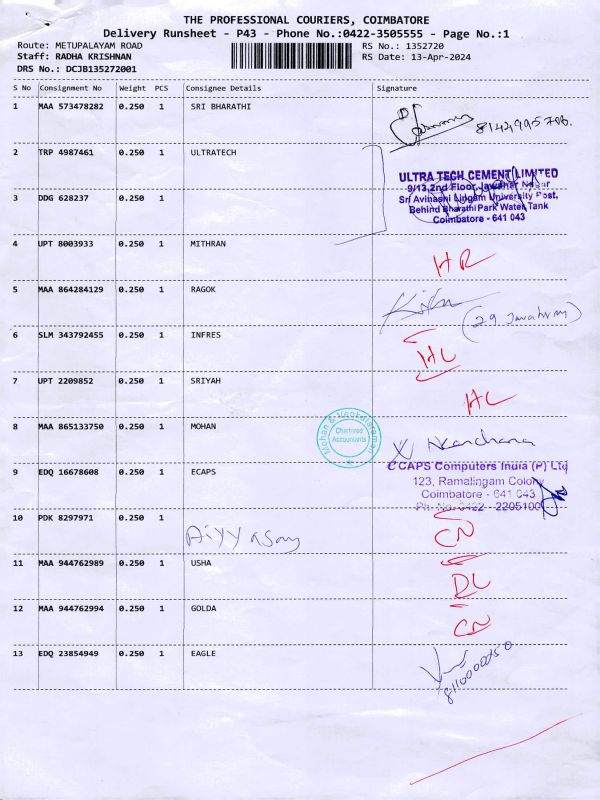 THE PROFESSIONAL COURIERS, COIMBATORE
Delivery Runsheet - P43 - Phone No.:0422-3505555 - Page No.:1
Route: METUPALAYAM ROAD RS No.: 1352720
Staff: RADHA KRISHNAN RS Date: 13-Apr-2024
DRS No.: DCJB135272001
S No Consignment No Weight PCS Consignee Details Signature
1 MAA 573478282 0.250 1 SRI BHARATHI
2 TRP 4987461 0.250 1 ULTRATECH
ULTRA TECH CEMENT LIMITED
9/13,2nd Floor,Jawahar Nagar
3 DDG 628237 0.250 1
Sri Avinashi Lingam University Post,
Behind Bharathi Park Water Tank
Coimbatore - 641 043
4 UPT 8003933 0.250 1 MITHRAN
HR
5 MAA 864284129 0.250 1 RAGOK
6 SLM 343792455 0.250 1 INFRES
HL
7 UPT 2209852 0.250 1 SRIYAH
HL
8 MAA 865133750 0.250 1 MOHAN
Mohan & Venkataraman
Chartered
Accountants
9 EDQ 16678608 0.250 1 ECAPS
CCAPS Computers India (P) Ltd
123, Ramalingam Colony
Coimbatore - 641 043
Ph. No: 0422 - 2205100
10 PDK 8297971 0.250 1
CN
11 MAA 944762989 0.250 1 USHA
DL
12 MAA 944762994 0.250 1 GOLDA
CN
13 EDQ 23854949 0.250 1 EAGLE